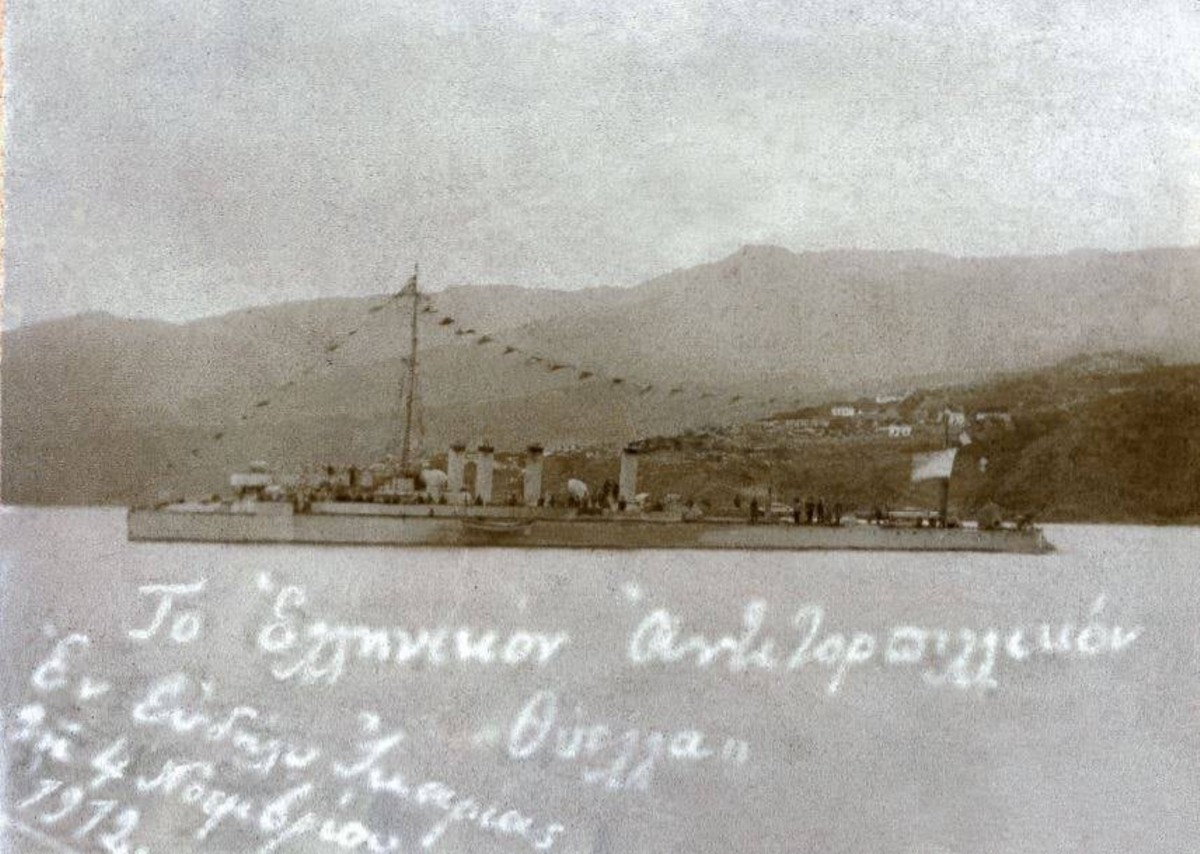 Το Ἑλληνικόν Ἀντιτορπιλλικόν
"Θύελλα"
Ἐν Εὐδήλῳ Ἰκαρίας
τῇ 4 Νοεμβρίου
1912